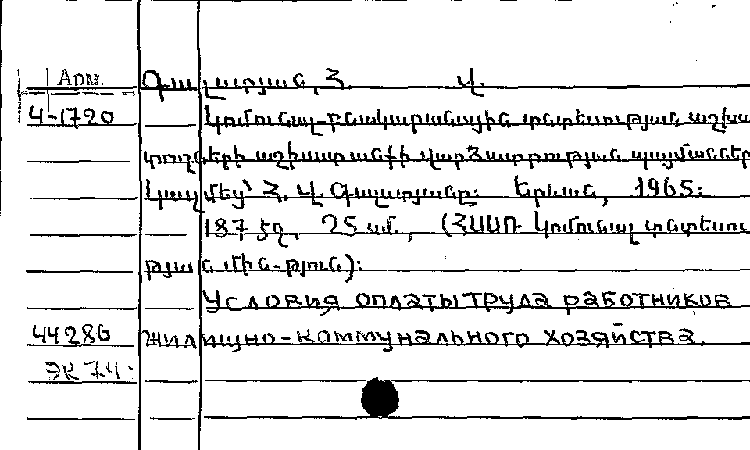 Арм. Գալստյան, Հ. Վ.
4-1720 Կոմունալ-բնակարանային տնտեսության աշխա
տողների աշխատանքի վարձատրության պայմանները
Կազմեց՝ Հ. Վ. Գալստյանը: Երևան, 1965:
187 էջ, 25 սմ., (ՀՍՍՌ Կոմունալ տնտեսու
թյան մին-թյուն):
Условия оплаты труда работников
44286 жилищно-коммунального хозяйства.
ЭК 74.